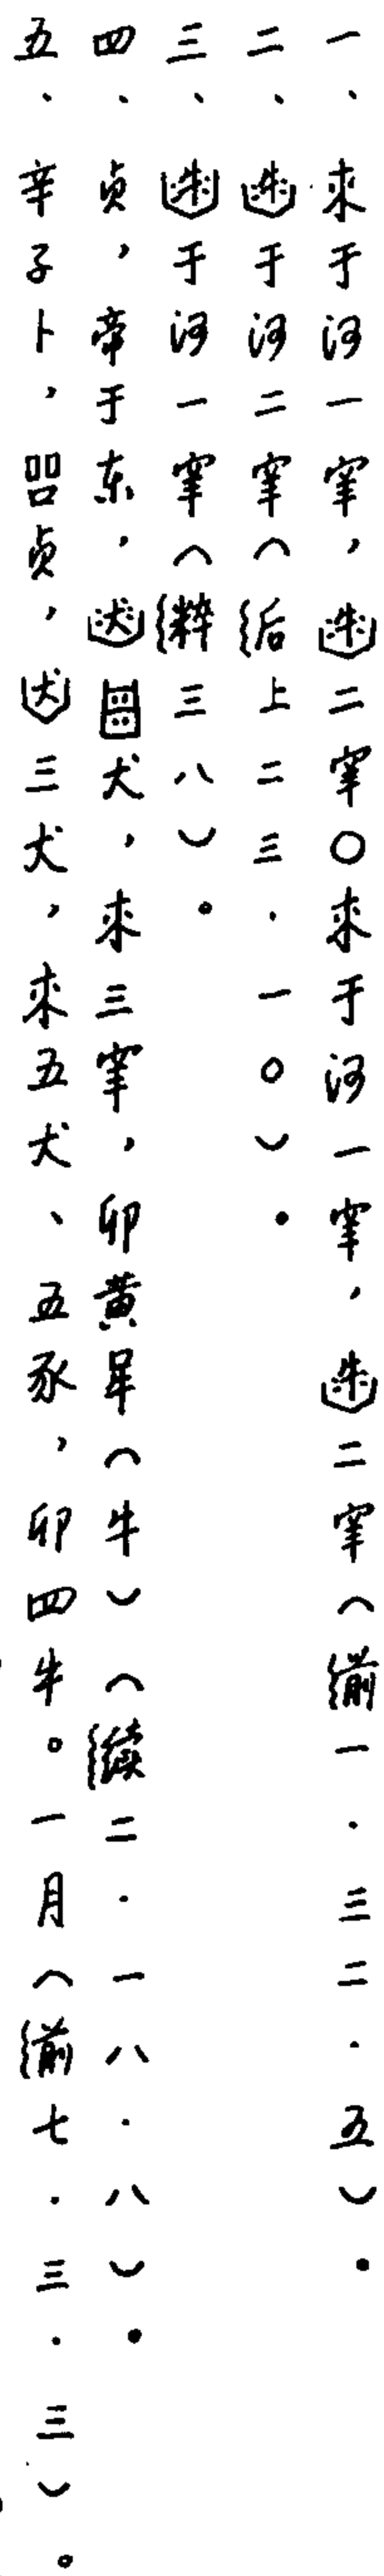 一、来于河一宰，二宰○来于河一宰，二宰（前一·三二·五）。
二、于河二宰（后上二三·一○）。
三、于河一宰（粹三八）。
四、贞，帝于东，犬，来三宰，卯黄（牛）（续二·一八·八）。
五、辛子卜，贞，三犬，来五犬、五豕，卯四牛。一月（前七·三·三）。